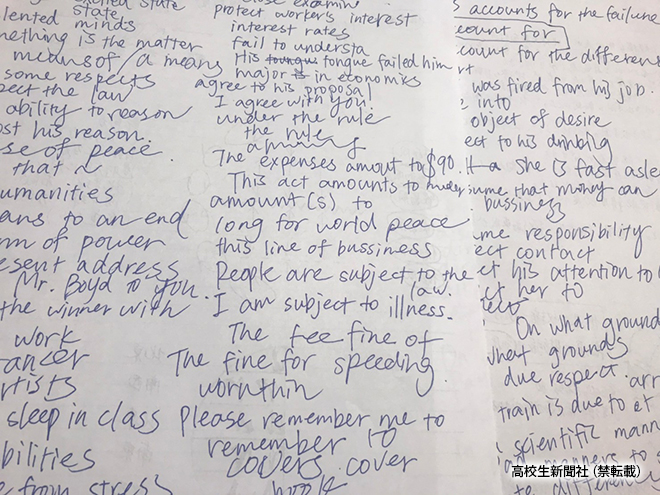 excited state
lented state
minds
mething is the matter
means of / a means
some respects
pect the law
ability to reason
ost his reason.
se of peace.
that
umanities
ans to an end
rm of power
esent address
Mr. Boyd to you.
the winner with
work
ancer
rtists
sleep in class
bilities
e from stress
close examine
protect worker's interest
interest rates
fail to understa
His tongue failed him
major in economics
agree to his proposal
I agree with you.
under the rule
the rule
The expenses amout to $90.
This act amounts to
amount(s) to
long for world peace
this line of bussiness
People are subject to the
law.
I am subject to illness.
The fee fine of
The fine for speeding.
wornthin
Please remember me to
remember to
covers cover
book
s accounts for the failure
count for
count for the differen
was fired from his job.
into
object of desire
ect to his drinbing
She is fast asle
ume that money can
bussiness
me responsibility
ect contact
ct his attention to
ct her to
On what ground
what grounds
due respect.
train is due to
scientific mann
manners to s
to different
高校生新聞社 (禁転載)